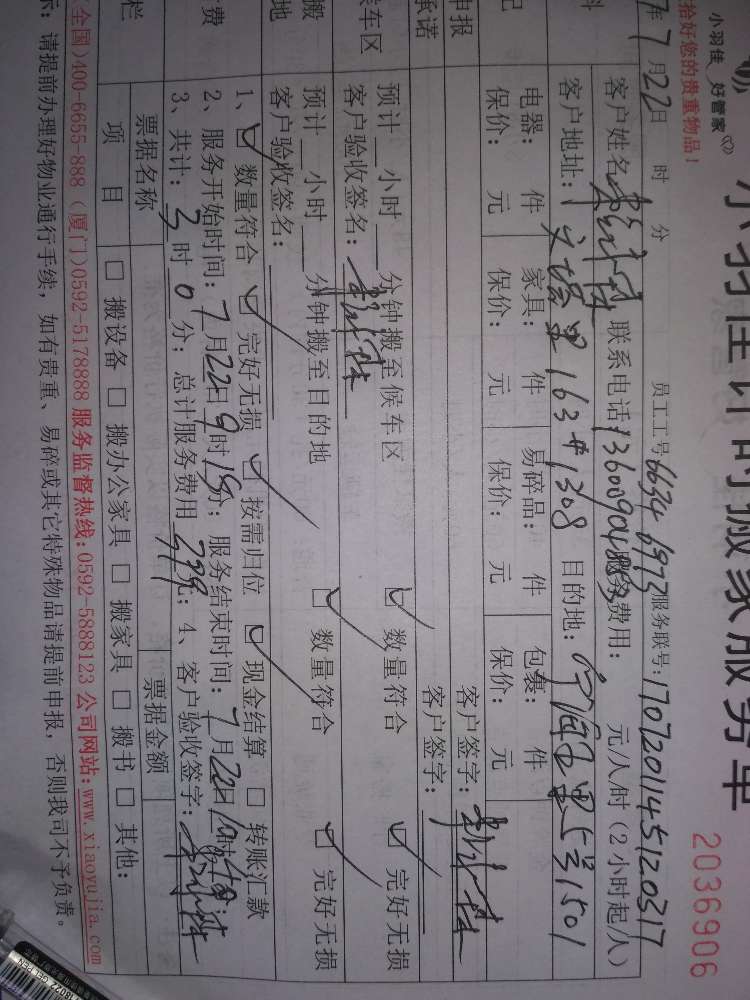 小羽佳 好管家
小羽佳计时搬家服务单
拾好您的贵重物品！
2036906
年 7 月 22 日 时 分 员工工号 6634 6973 服务联号：170720114512 0317
客户姓名 联系电话 服务费用： 元/八时（2小时起/人）
客户地址： 里163#1308 目的地： 里5号1501
电器： 件 家具： 件 易碎品： 件 包裹： 件
保价： 元 保价： 元 保价： 元 保价： 元
申报 客户签字：
承诺 客户签字：
候车区 预计 小时 分钟搬至候车区 数量符合 完好无损
客户验收签名：
搬 预计 小时 分钟搬至目的地 数量符合 完好无损
地 客户验收签名：
1、 数量符合 完好无损 按需归位 现金结算 转账汇款
费 2、服务开始时间：7月22日9时15分；服务结束时间：7月22日
3、共计：3时0分；总计服务费用 元；4、客户验收签字：
栏 票据名称 票据金额
项目 搬设备 搬办公家具 搬家具 搬书 其他：
（全国）400-6655-888（厦门）0592-5178888 服务监督热线：0592-5888123 公司网站：www.xiaoyujia.com
示：请提前办理好物业通行手续，如有贵重、易碎或其它特殊物品请提前申报，否则我司不予负责。
GEL PEN